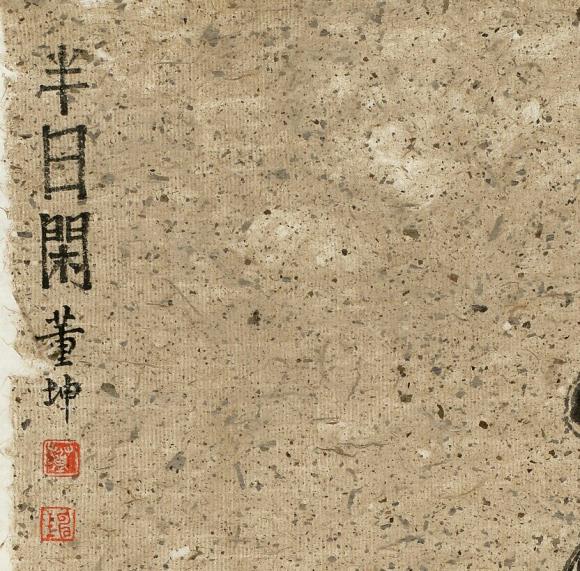 半日閑
董坤